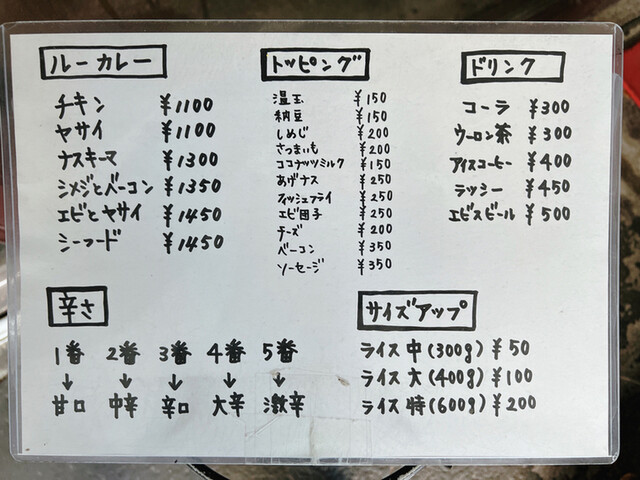 ルーカレー
チキン ¥1100
ヤサイ ¥1100
ナスキーマ ¥1300
シメジとベーコン ¥1350
エビとヤサイ ¥1450
シーフード ¥1450
トッピング
温玉 ¥150
納豆 ¥150
しめじ ¥200
さつまいも ¥200
ココナッツミルク ¥150
あげナス ¥250
フィッシュフライ ¥250
エビ団子 ¥250
チーズ ¥200
ベーコン ¥350
ソーセージ ¥350
ドリンク
コーラ ¥300
ウーロン茶 ¥300
アイスコーヒー ¥400
ラッシー ¥450
エビスビール ¥500
辛さ
1番 2番 3番 4番 5番
↓ ↓ ↓ ↓ ↓
甘口 中辛 辛口 大辛 激辛
サイズアップ
ライス中(300g) ¥50
ライス大(400g) ¥100
ライス特(600g) ¥200